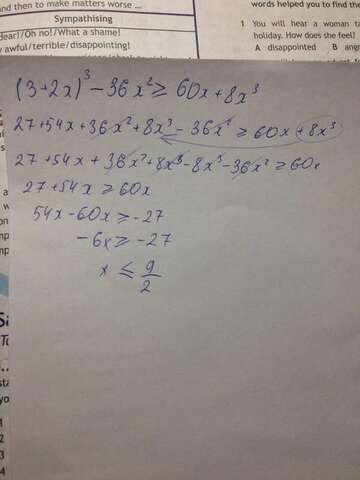 and then to make matters worse ...
Sympathising
dear!/Oh no!/What a shame!
awful/terrible/disappointing!
words helped you to find the
1 You will hear a woman
holiday. How does she feel?
A disappointed B
(3+2x)³ - 36x² ≥ 60x + 8x³
27 + 54x + 36x² + 8x³ - 36x² ≥ 60x + 8x³
27 + 54x + 36x² + 8x³ - 8x³ - 36x² ≥ 60x
27 + 54x ≥ 60x
54x - 60x ≥ -27
-6x ≥ -27
x ≤ 9/2